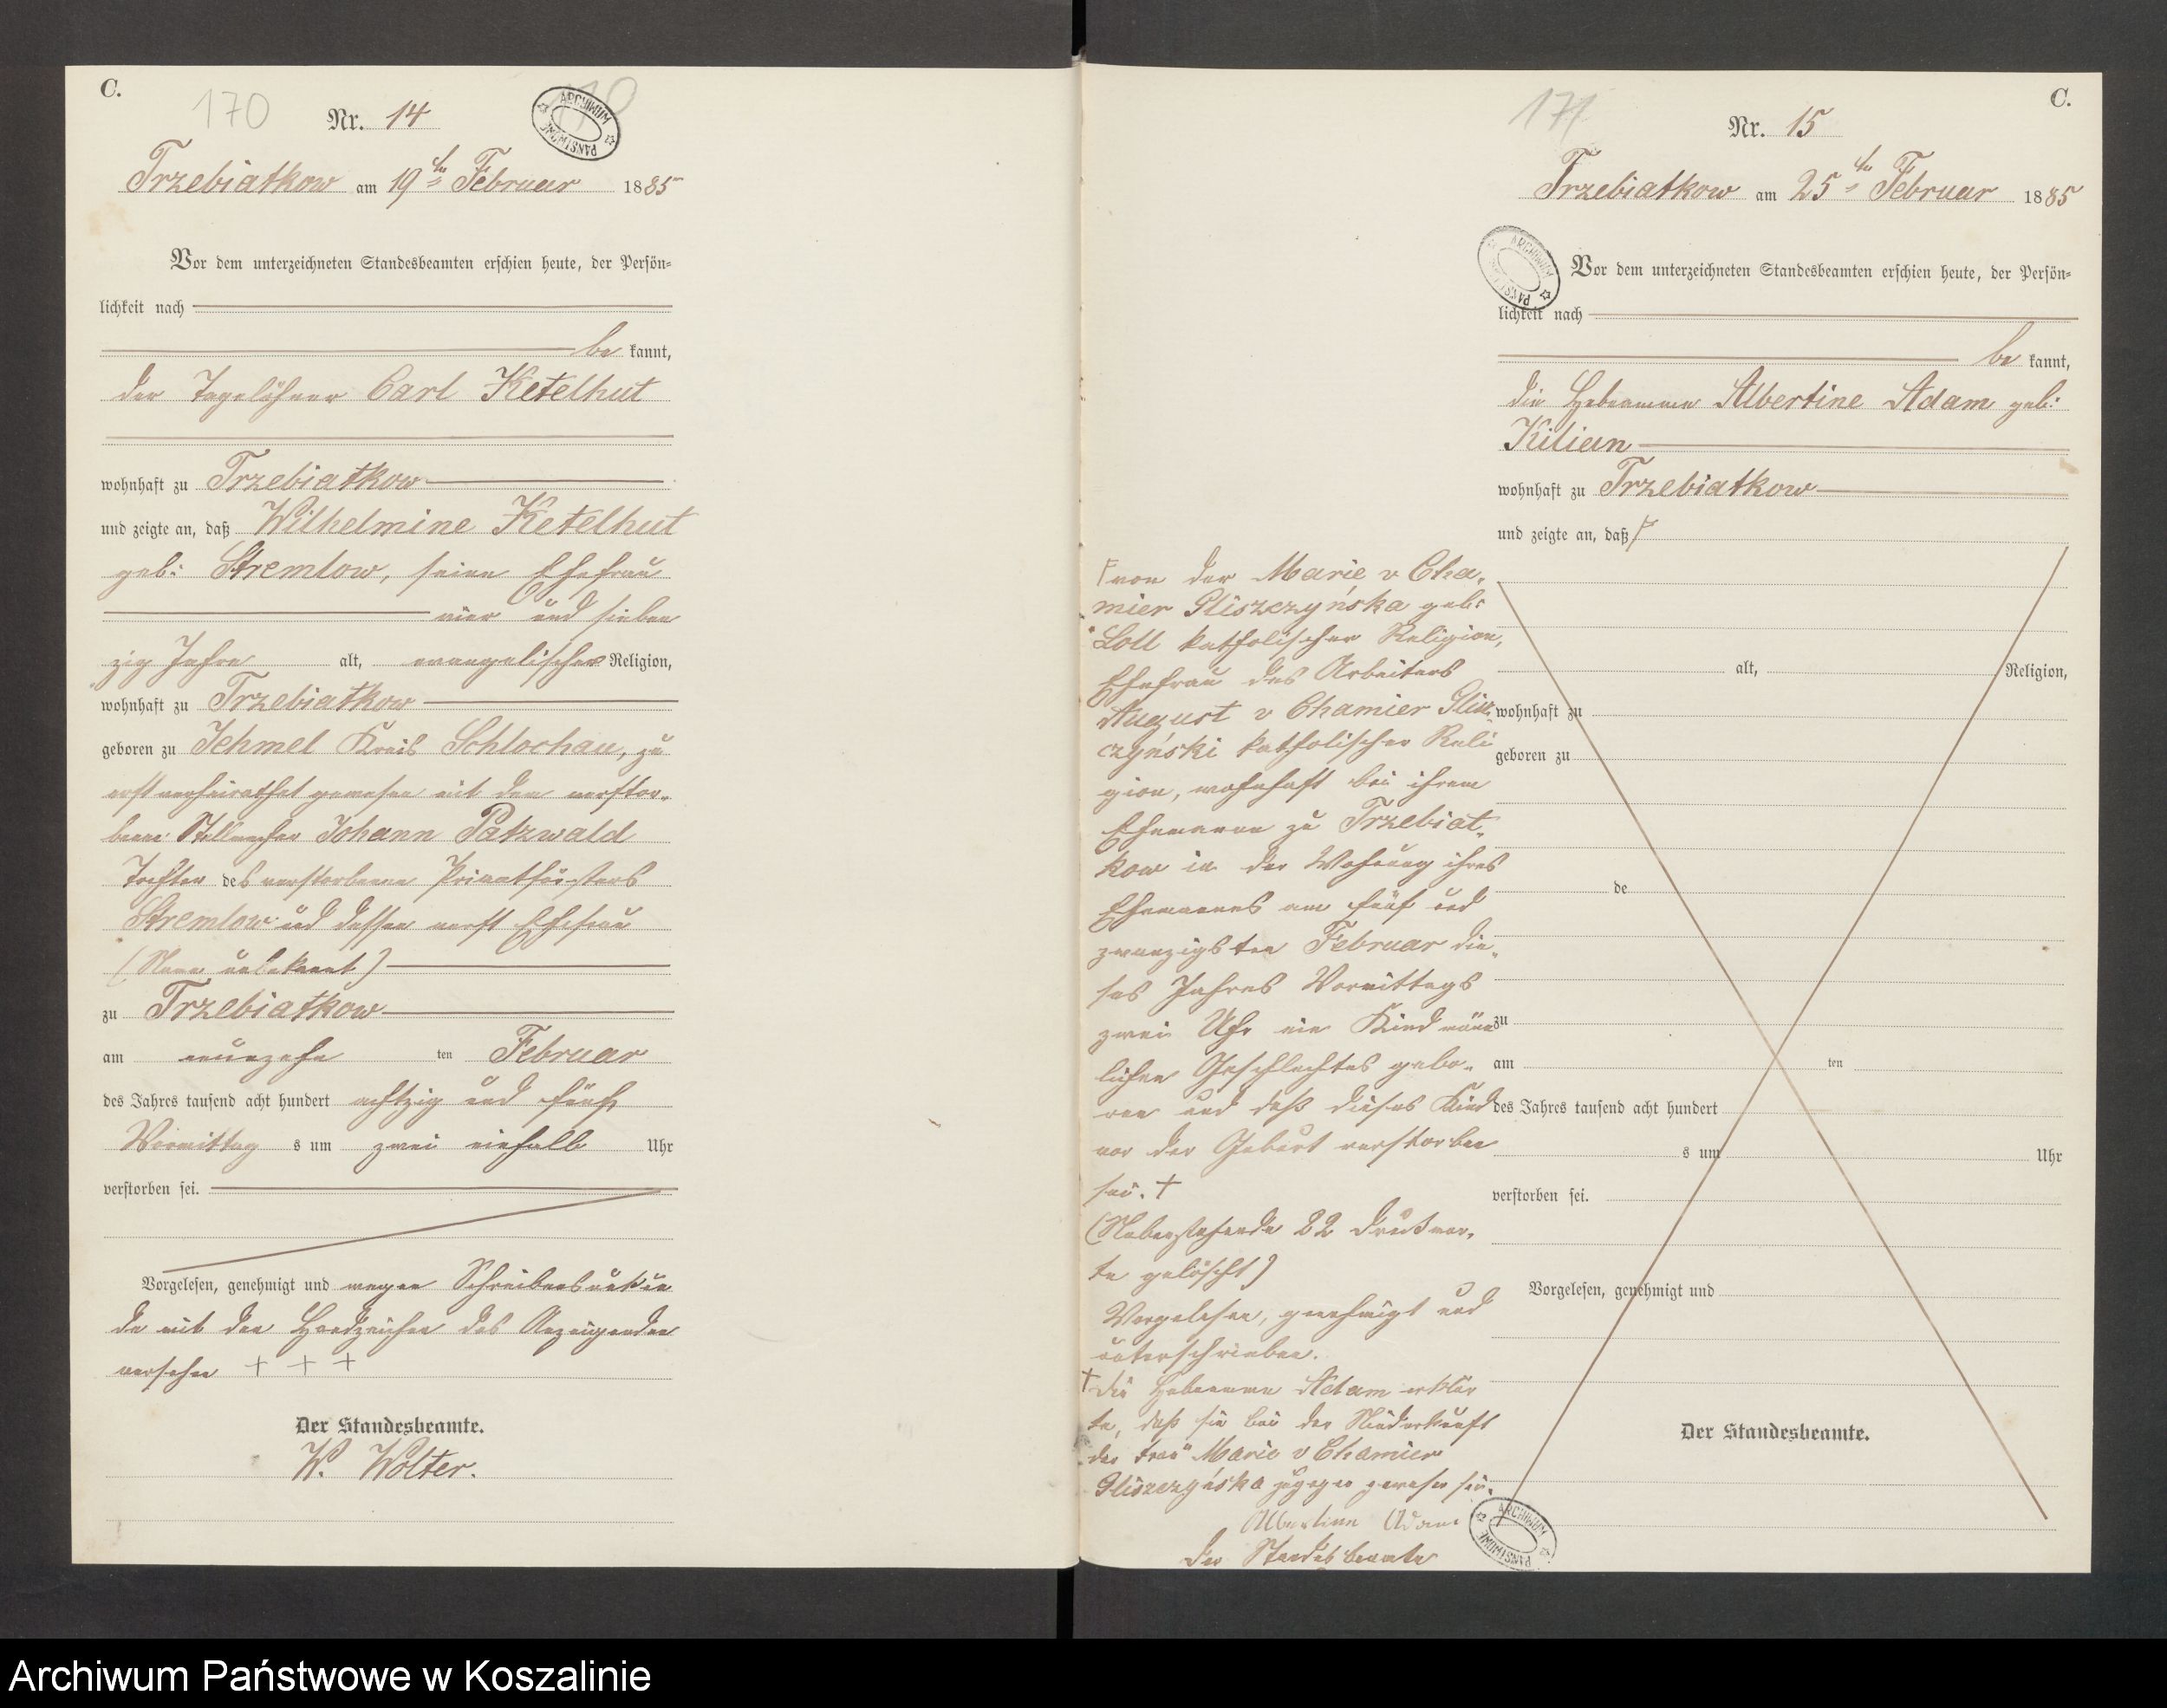 C.
170
Nr. 14
ARCHIWUM PAŃSTWOWE
Trzebiatkow am 19ten Februar 1885
Vor dem unterzeichneten Standesbeamten erschien heute, der Persön=
lichkeit nach
be kannt,
der Tagelöhner Carl Ketelhut
wohnhaft zu Trzebiatkow
und zeigte an, daß Wilhelmine Ketelhut
geb: Stremlow, seine Ehefrau
vier und sieben
zig Jahre alt, evangelischer Religion,
wohnhaft zu Trzebiatkow
geboren zu Jehmel Kreis Schlochau, zu
erst verheirathet gewesen mit dem verstor-
benen Johann Patzwald
Tochter des verstorbenen Privatförsters
Stremlow und dessen verst Ehefrau
(Name unbekannt)
zu Trzebiatkow
am neunzehn ten Februar
des Jahres tausend acht hundert achtzig und fünf
Vormittag s um zwei einhalb Uhr
verstorben sei.
Vorgelesen, genehmigt und wegen Schreibensunkun
de mit den Handzeichen des Anzeigenden
versehen + + +
Der Standesbeamte.
W. Wolter.
C.
171
Nr. 15
Trzebiatkow am 25ten Februar 1885
ARCHIWUM PAŃSTWOWE
Vor dem unterzeichneten Standesbeamten erschien heute, der Persön=
lichkeit nach
be kannt,
die Hebeamme Albertine Adam geb:
Kilian
wohnhaft zu Trzebiatkow
und zeigte an, daß
von der Marie v Cha-
mier Gliszczyńska geb:
Loll katholischer Religion,
Ehefrau des Arbeiters
August v Chamier Glisz-
czyński katholischer Reli
gion, wohnhaft bei ihrem
Ehemanne zu Trzebiat-
kow in der Wohnung ihres
Ehemannes am fünf und
zwanzigsten Februar die-
ses Jahres Vormittags
zwei Uhr ein Kind männ
lichen Geschlechtes gebo-
ren und daß dieses Kind
vor der Geburt verstorben
sei. +
(Nebenstehende 22 Druckwor-
te gelöscht)
Vorgelesen, genehmigt und
unterschrieben.
+ die Hebeamme Adam erklär
te, daß sie bei der Niederkunft
der Frau Marie v Chamier
Gliszczyńska zugegen gewesen sei.
Albertine Adam
Der Standesbeamte
alt, Religion,
wohnhaft zu
geboren zu
de
zu
am ten
des Jahres tausend acht hundert
s um Uhr
verstorben sei.
Vorgelesen, genehmigt und
Der Standesbeamte.
ARCHIWUM PAŃSTWOWE
Archiwum Państwowe w Koszalinie